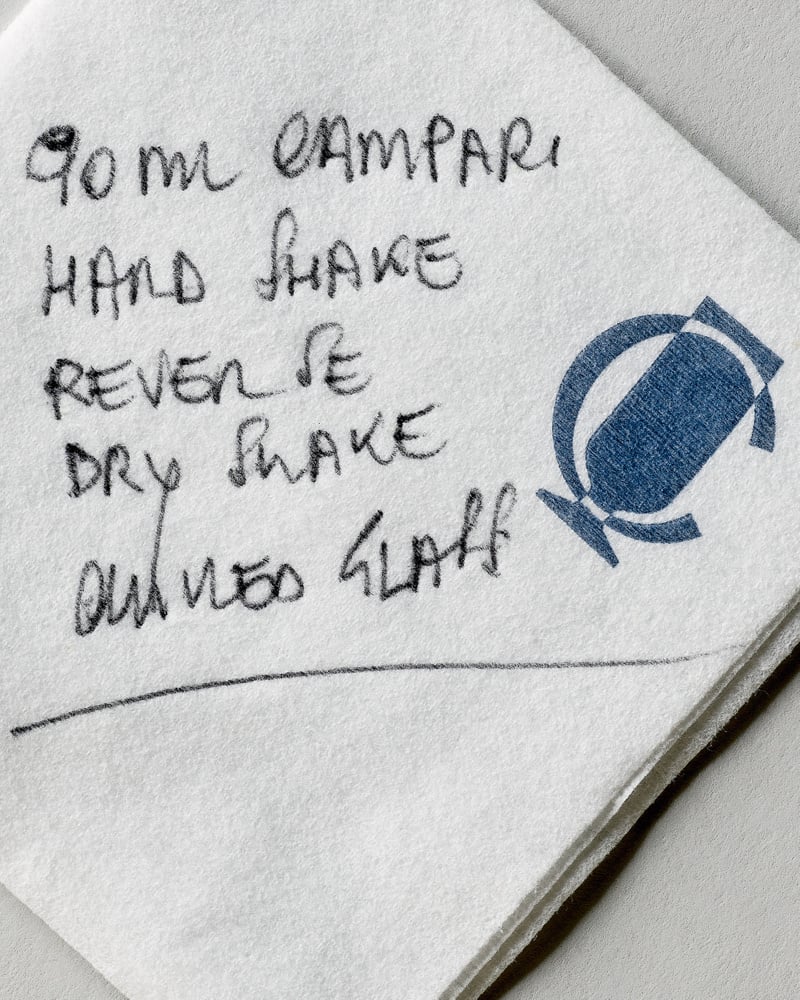 90 ml CAMPARI
HARD SHAKE
REVERSE
DRY SHAKE
CHILLED GLASS